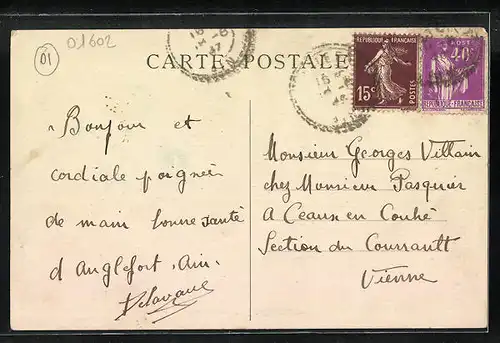 01602
01
CARTE POSTALE
REPUBLIQUE FRANÇAISE
15c
POSTES
POSTES
40c
REPUBLIQUE FRANÇAISE
Bonjour et
cordiale poignée
de main bonne santé
d'Anglefort, Ain.
Monsieur Georges Villain
chez Monsieur Pasquier
a Ceaux en Couhé
Section du
Vienne